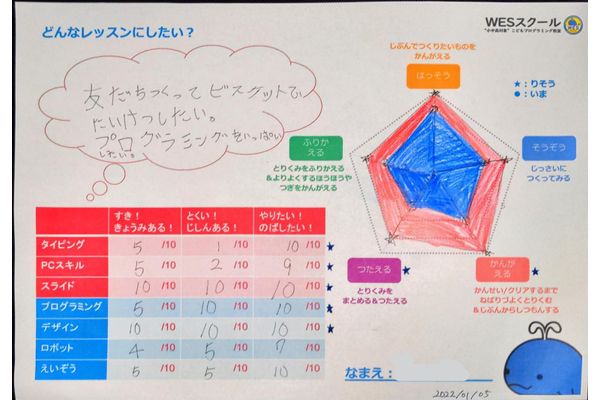 どんなレッスンにしたい？
WESスクール
"小中高対象" こどもプログラミング教室
友だちつくってビスケットで
たいけつしたい。
プログラミングをいっぱい
したい。
じぶんでつくりたいものを
かんがえる
はっそう
★：りそう
●：いま
ふりか
える
とりくみをふりかえる
＆よりよくするほうほうや
つぎをかんがえる
そうぞう
じっさいに
つくってみる
つたえる
とりくみを
まとめる＆つたえる
かんが
える
かんせい/クリアするまで
ねばりづよくとりくむ
＆じぶんからしつもんする
すき！ きょうみある！ とくい！ じしんある！ やりたい！ のばしたい！
タイピング 5 /10 1 /10 10 /10 ★
PCスキル 5 /10 2 /10 9 /10 ★
スライド 10 /10 10 /10 10 /10 ★
プログラミング 5 /10 10 /10 10 /10 ★
デザイン 10 /10 10 /10 10 /10 ★
ロボット 4 /10 5 /10 7 /10
えいぞう 5 /10 5 /10 10 /10
なまえ：
2022/01/05